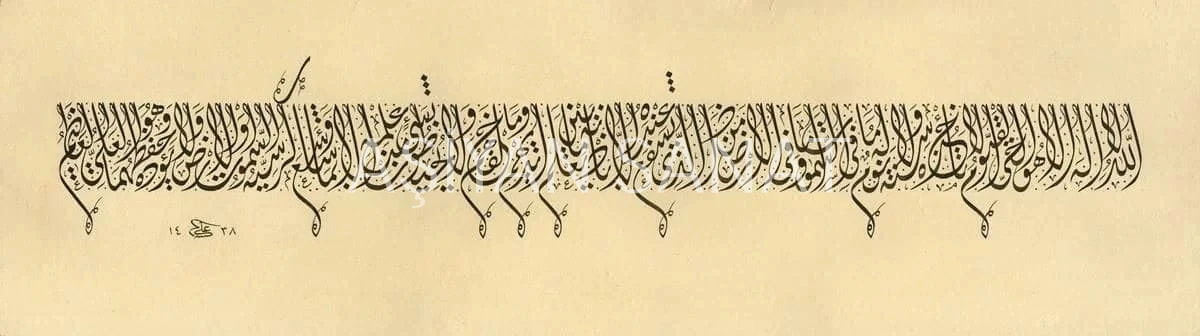 الله لا إله إلا هو الحي القيوم لا تأخذه سنة ولا نوم له ما في السموات وما في الأرض من ذا الذي يشفع عنده إلا بإذنه يعلم ما بين أيديهم وما خلفهم ولا يحيطون بشيء من علمه إلا بما شاء وسع كرسيه السموات والأرض ولا يؤده حفظهما وهو العلي العظيم
AŞİYAN SANAT
١٤ ٣٨